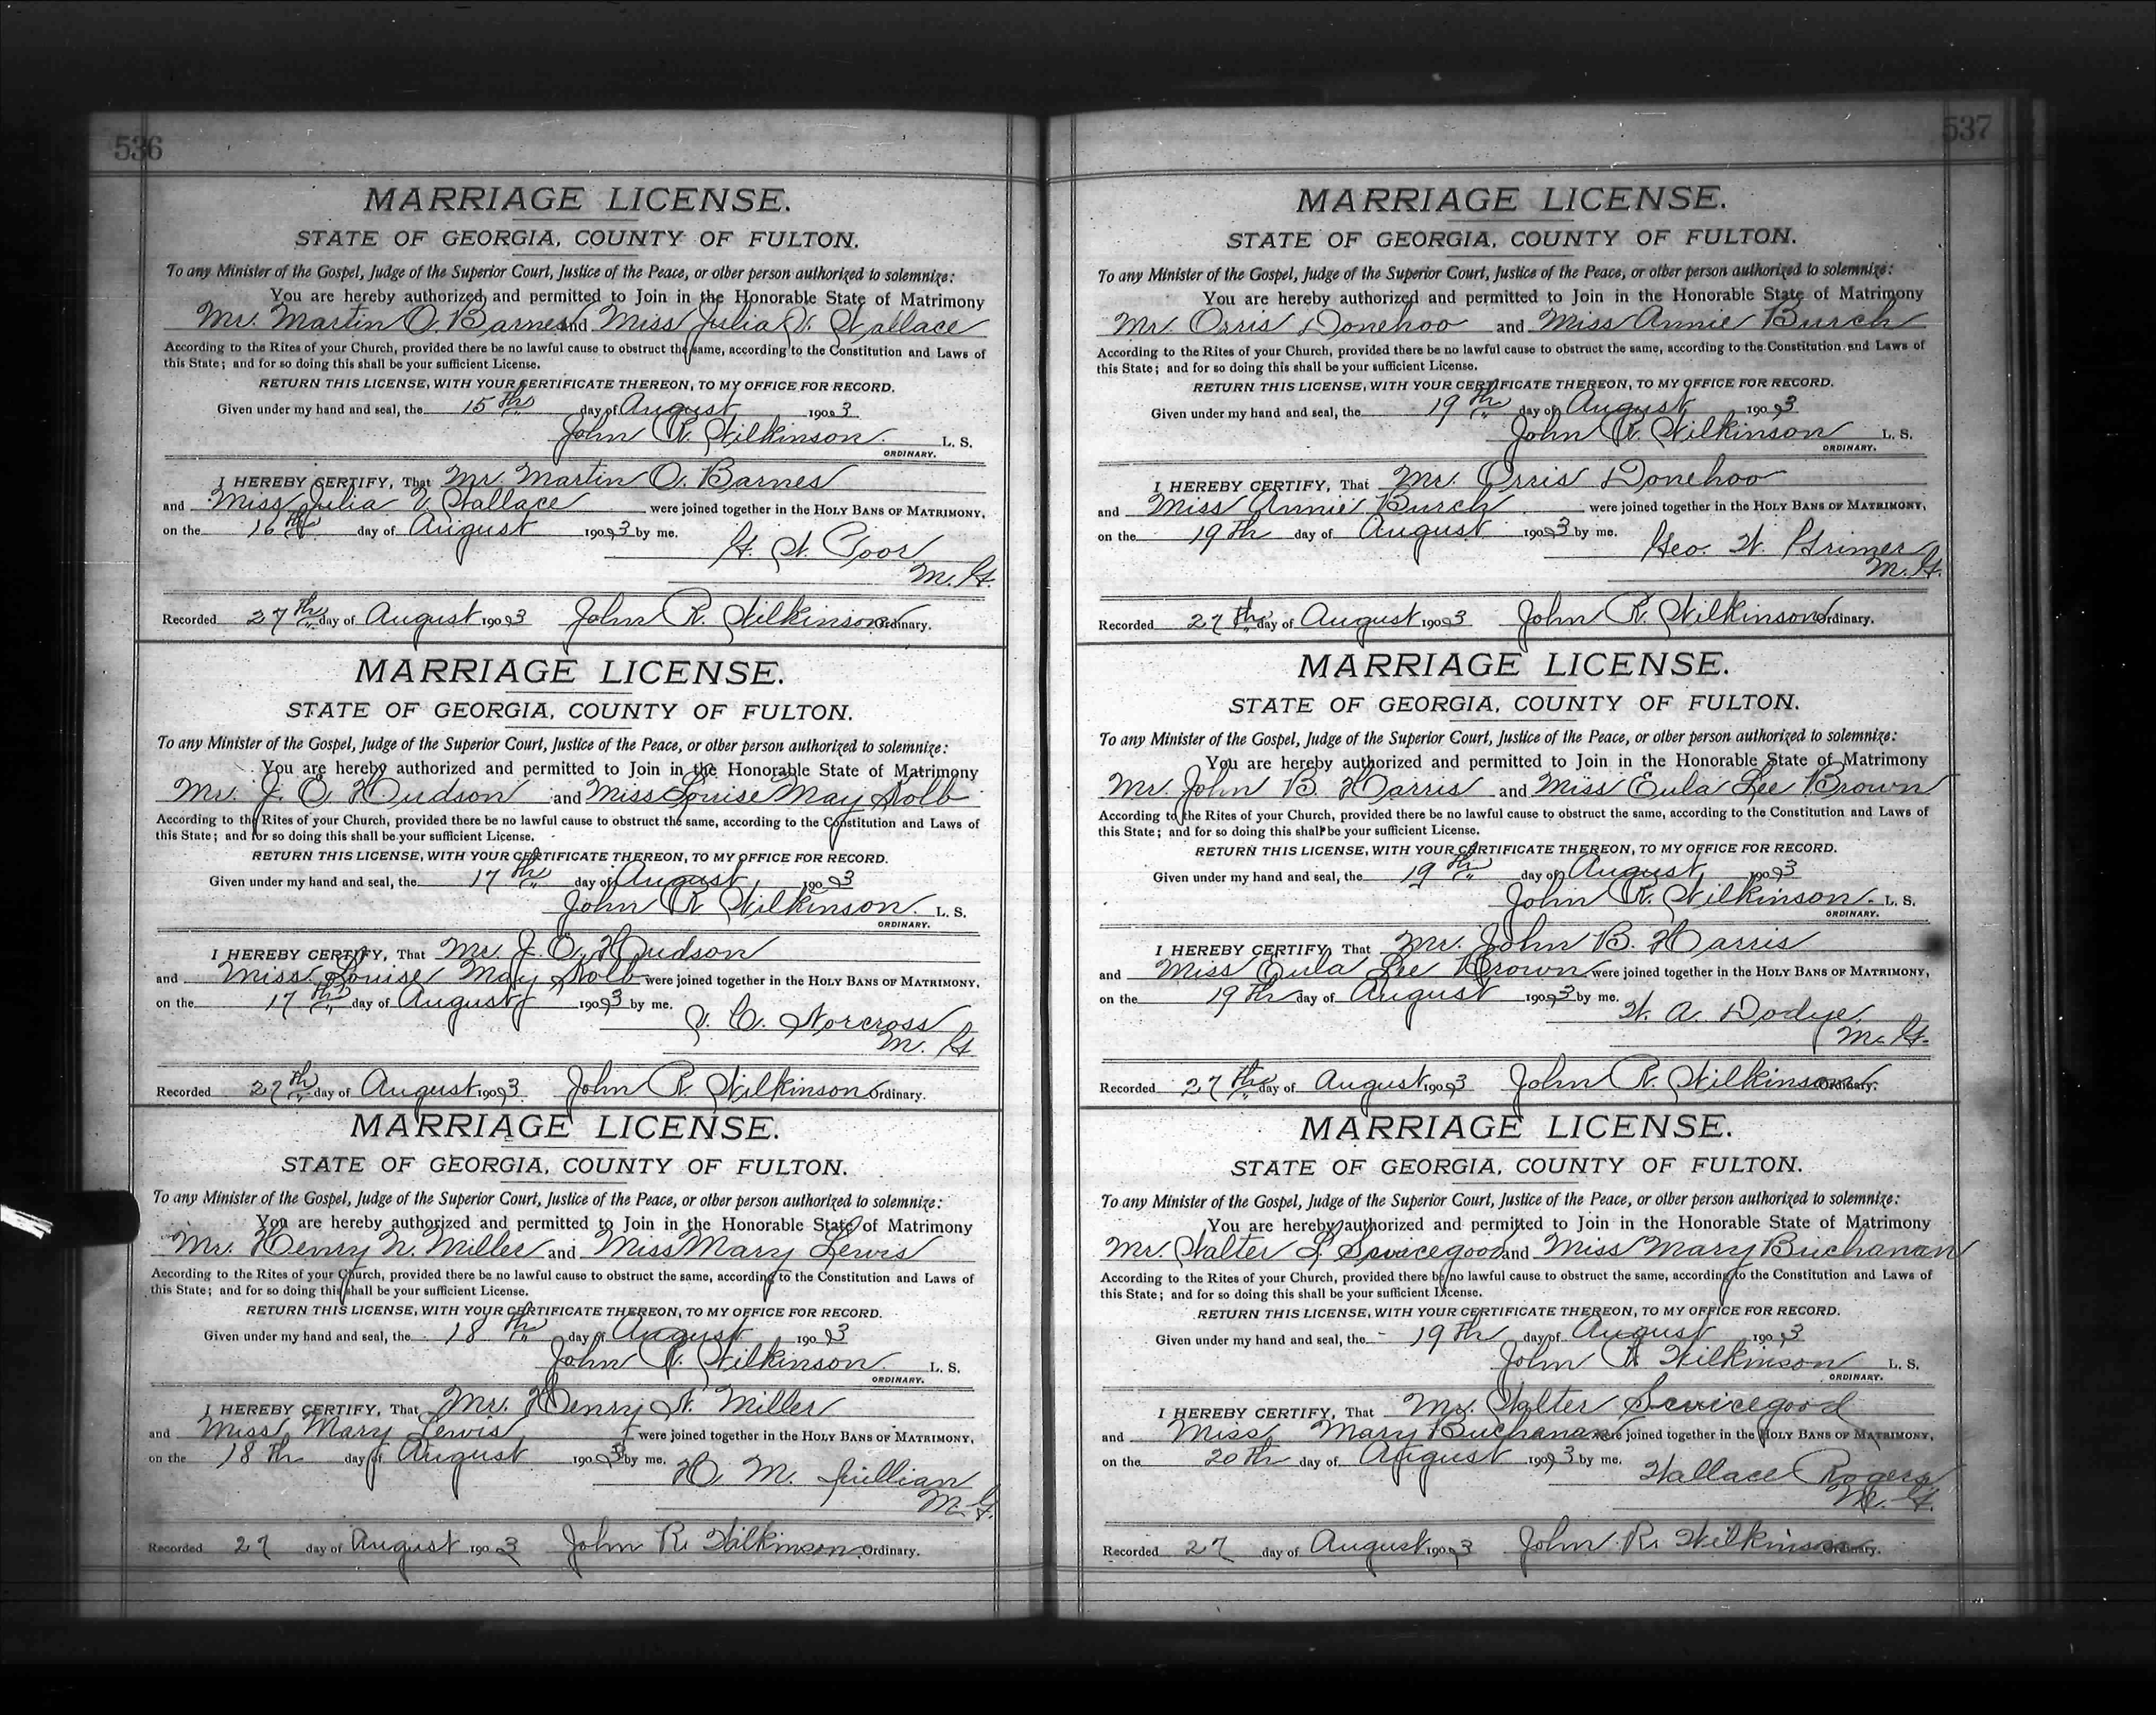 536
MARRIAGE LICENSE.
STATE OF GEORGIA, COUNTY OF FULTON.
To any Minister of the Gospel, Judge of the Superior Court, Justice of the Peace, or other person authorized to solemnize:
You are hereby authorized and permitted to Join in the Honorable State of Matrimony
Mr. Martin O. Barnes and Miss Julia V. Wallace
According to the Rites of your Church, provided there be no lawful cause to obstruct the same, according to the Constitution and Laws of
this State; and for so doing this shall be your sufficient License.
RETURN THIS LICENSE, WITH YOUR CERTIFICATE THEREON, TO MY OFFICE FOR RECORD.
Given under my hand and seal, the 15th day of August 1903
John R. Wilkinson L. S.
ORDINARY.
I HEREBY CERTIFY, That Mr. Martin O. Barnes
and Miss Julia V. Wallace were joined together in the HOLY BANS OF MATRIMONY,
on the 16th day of August 1903 by me.
W. Poor
M. G.
Recorded 27th day of August 1903 John R. Wilkinson Ordinary.
MARRIAGE LICENSE.
STATE OF GEORGIA, COUNTY OF FULTON.
To any Minister of the Gospel, Judge of the Superior Court, Justice of the Peace, or other person authorized to solemnize:
You are hereby authorized and permitted to Join in the Honorable State of Matrimony
Mr. J. O. Hudson and Miss Louise May
According to the Rites of your Church, provided there be no lawful cause to obstruct the same, according to the Constitution and Laws of
this State; and for so doing this shall be your sufficient License.
RETURN THIS LICENSE, WITH YOUR CERTIFICATE THEREON, TO MY OFFICE FOR RECORD.
Given under my hand and seal, the 17th day of August, 1903
John R. Wilkinson. L. S.
ORDINARY.
I HEREBY CERTIFY, That Mr. J. O. Hudson
and Miss Louise May were joined together in the HOLY BANS OF MATRIMONY,
on the 17th day of August 1903 by me.
Norcross
M. G.
Recorded 27th day of August 1903 John R. Wilkinson Ordinary.
MARRIAGE LICENSE.
STATE OF GEORGIA, COUNTY OF FULTON.
To any Minister of the Gospel, Judge of the Superior Court, Justice of the Peace, or other person authorized to solemnize:
You are hereby authorized and permitted to Join in the Honorable State of Matrimony
Mr. Henry N. Miller and Miss Mary Lewis
According to the Rites of your Church, provided there be no lawful cause to obstruct the same, according to the Constitution and Laws of
this State; and for so doing this shall be your sufficient License.
RETURN THIS LICENSE, WITH YOUR CERTIFICATE THEREON, TO MY OFFICE FOR RECORD.
Given under my hand and seal, the 18th day of August 1903
John R. Wilkinson. L. S.
ORDINARY.
I HEREBY CERTIFY, That Mr. Henry N. Miller
and Miss Mary Lewis were joined together in the HOLY BANS OF MATRIMONY,
on the 18th day of August 1903 by me.
H. M. Quillian
M. G.
Recorded 27 day of August 1903 John R. Wilkinson Ordinary.
537
MARRIAGE LICENSE.
STATE OF GEORGIA, COUNTY OF FULTON.
To any Minister of the Gospel, Judge of the Superior Court, Justice of the Peace, or other person authorized to solemnize:
You are hereby authorized and permitted to Join in the Honorable State of Matrimony
Mr. Orris Donehoo and Miss Annie Burch
According to the Rites of your Church, provided there be no lawful cause to obstruct the same, according to the Constitution and Laws of
this State; and for so doing this shall be your sufficient License.
RETURN THIS LICENSE, WITH YOUR CERTIFICATE THEREON, TO MY OFFICE FOR RECORD.
Given under my hand and seal, the 19th day of August, 1903
John R. Wilkinson L. S.
ORDINARY.
I HEREBY CERTIFY, That Mr. Orris Donehoo
and Miss Annie Burch were joined together in the HOLY BANS OF MATRIMONY,
on the 19th day of August 1903 by me.
Geo. W. Grimer
M. G.
Recorded 27th day of August 1903 John R. Wilkinson Ordinary.
MARRIAGE LICENSE.
STATE OF GEORGIA, COUNTY OF FULTON.
To any Minister of the Gospel, Judge of the Superior Court, Justice of the Peace, or other person authorized to solemnize:
You are hereby authorized and permitted to Join in the Honorable State of Matrimony
Mr. John B. Harris and Miss Eula Lee Brown
According to the Rites of your Church, provided there be no lawful cause to obstruct the same, according to the Constitution and Laws of
this State; and for so doing this shall be your sufficient License.
RETURN THIS LICENSE, WITH YOUR CERTIFICATE THEREON, TO MY OFFICE FOR RECORD.
Given under my hand and seal, the 19th day of August, 1903
John R. Wilkinson. L. S.
ORDINARY.
I HEREBY CERTIFY, That Mr. John B. Harris
and Miss Eula Lee Brown were joined together in the HOLY BANS OF MATRIMONY,
on the 19th day of August 1903 by me.
W. A. Dodge,
M. G.
Recorded 27th day of August 1903 John R. Wilkinson Ordinary.
MARRIAGE LICENSE.
STATE OF GEORGIA, COUNTY OF FULTON.
To any Minister of the Gospel, Judge of the Superior Court, Justice of the Peace, or other person authorized to solemnize:
You are hereby authorized and permitted to Join in the Honorable State of Matrimony
Mr. Walter L. Scvicegood and Miss Mary Buchanan
According to the Rites of your Church, provided there be no lawful cause to obstruct the same, according to the Constitution and Laws of
this State; and for so doing this shall be your sufficient License.
RETURN THIS LICENSE, WITH YOUR CERTIFICATE THEREON, TO MY OFFICE FOR RECORD.
Given under my hand and seal, the 19th day of August 1903
John R. Wilkinson L. S.
ORDINARY.
I HEREBY CERTIFY, That Mr. Walter Scvicegood
and Miss Mary Buchanan were joined together in the HOLY BANS OF MATRIMONY,
on the 20th day of August 1903 by me.
Wallace Rogers
M. G.
Recorded 27 day of August 1903 John R. Wilkinson Ordinary.